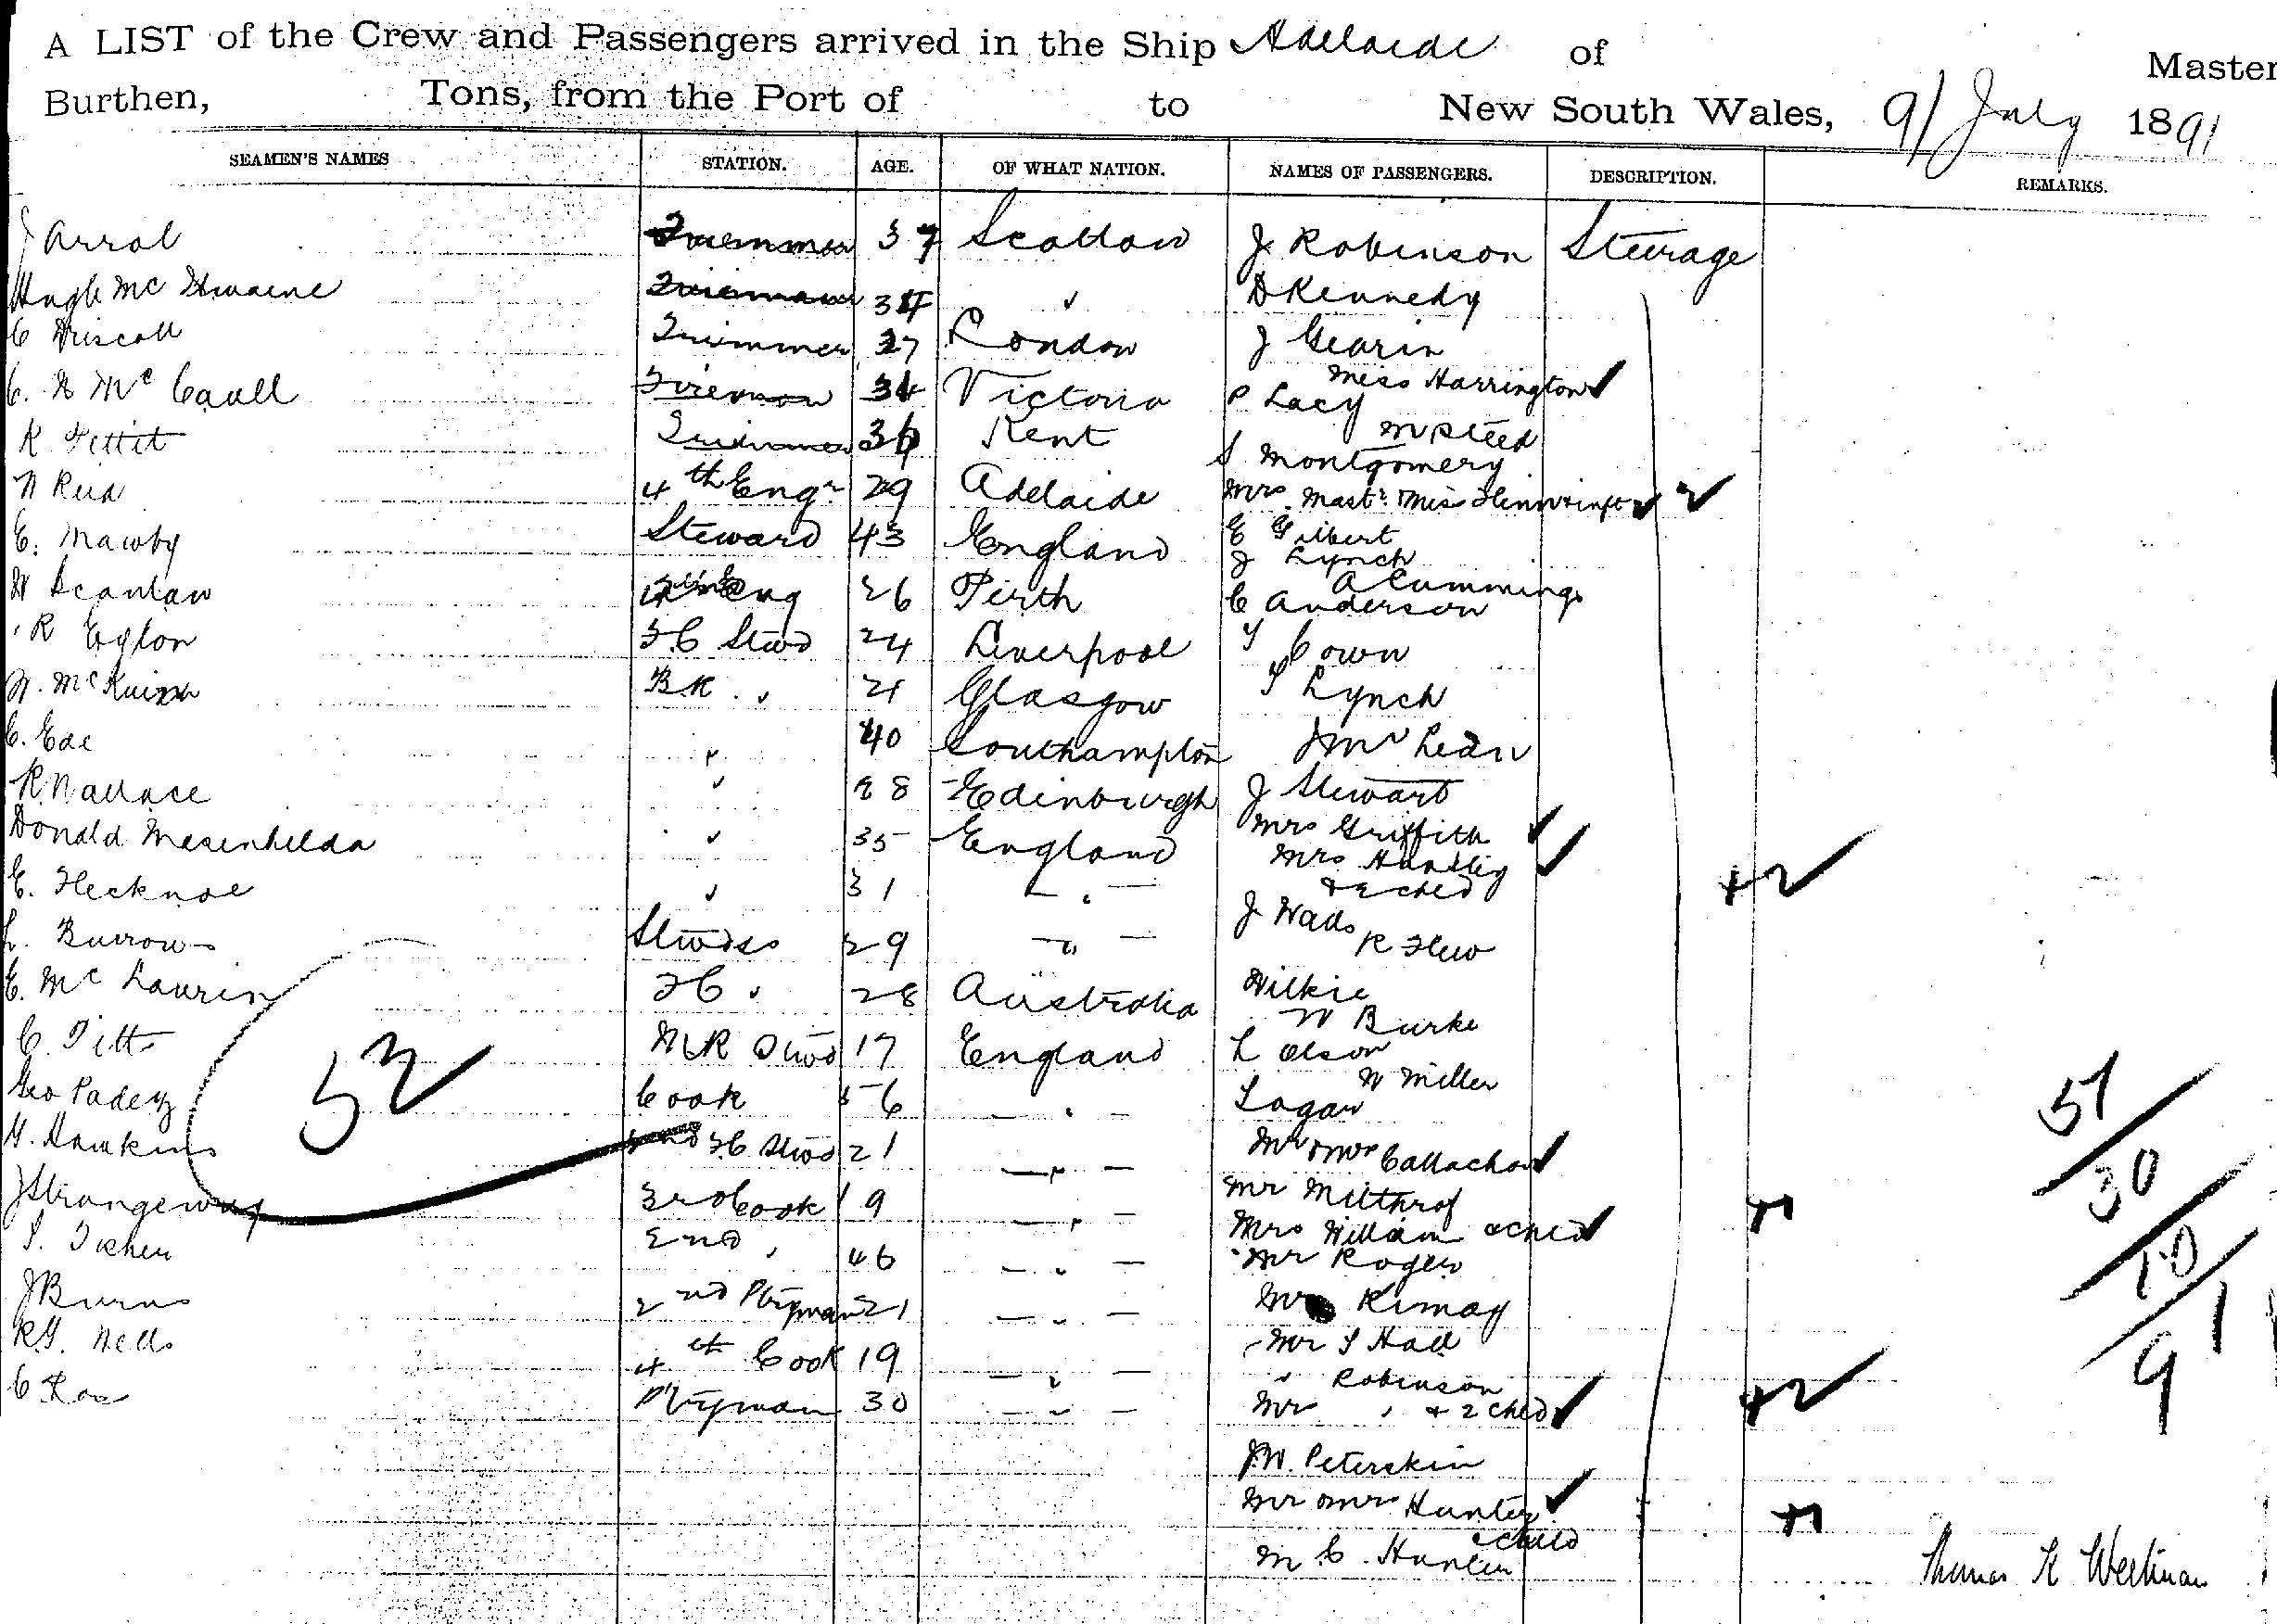 A LIST of the Crew and Passengers arrived in the Ship Adelaide of Master
Burthen, Tons, from the Port of to New South Wales, 9/ July 1891
SEAMEN'S NAMES STATION. AGE. OF WHAT NATION. NAMES OF PASSENGERS. DESCRIPTION. REMARKS.
J Arrol 37 Scotland J Robinson Steerage
Hugh Mc 34 " D Kennedy
C Driscoll Trimmer 27 London J Gearin
Miss Harrington
C. Mc Caull Fireman 34 Victoria P Lacy
M Steed
R Pettit Trimmer 36 Kent S Montgomery
W Reid 4th Engr 29 Adelaide Mrs. Mastr Miss
E. Mawby Steward 43 England E Gilbert
J Lynch
W Scanlan Eng 26 Perth A Cummings
C Anderson
R Eglon F.C Stwd 24 Liverpool Y Cown
W. Mc BK. " 21 Glasgow Lynch
C. Ede " 40 Southampton Lean
R Wallace " 28 Edinburgh J Stewart
Donald " 35 England Mrs Griffith
Mrs Huntley
E. Flecknoe " 31 — " — & 2 child +2
L. Burrows Stwdss 29 — " — J Wads
R Flew
E. Mc Laurin FC " 28 Australia Wilkie
W Burke
C. Pitts Stwd 17 England L Olson
W Miller
52
Geo Padey Cook 56 — " — Logan
51
G. Hawkins 2nd F.C Stwd 21 — " — Mr & Mrs Callachan
30
J Strangeway 3rd Cook 19 — " — Mr Milthrof
Mrs William & child +1
10
2nd " 46 — " — Mr Roger
J Burns 2nd P'tryman 21 — " — Kimay
91
R.G. Wells 4th Cook 19 — " — Mr S Hall
" Robinson
C P'tryman 30 — " — Mr " & 2 child +2
J.W. Peterskin
Mr & Mrs Hunter
& child +1
M C. Hunter
Thomas K